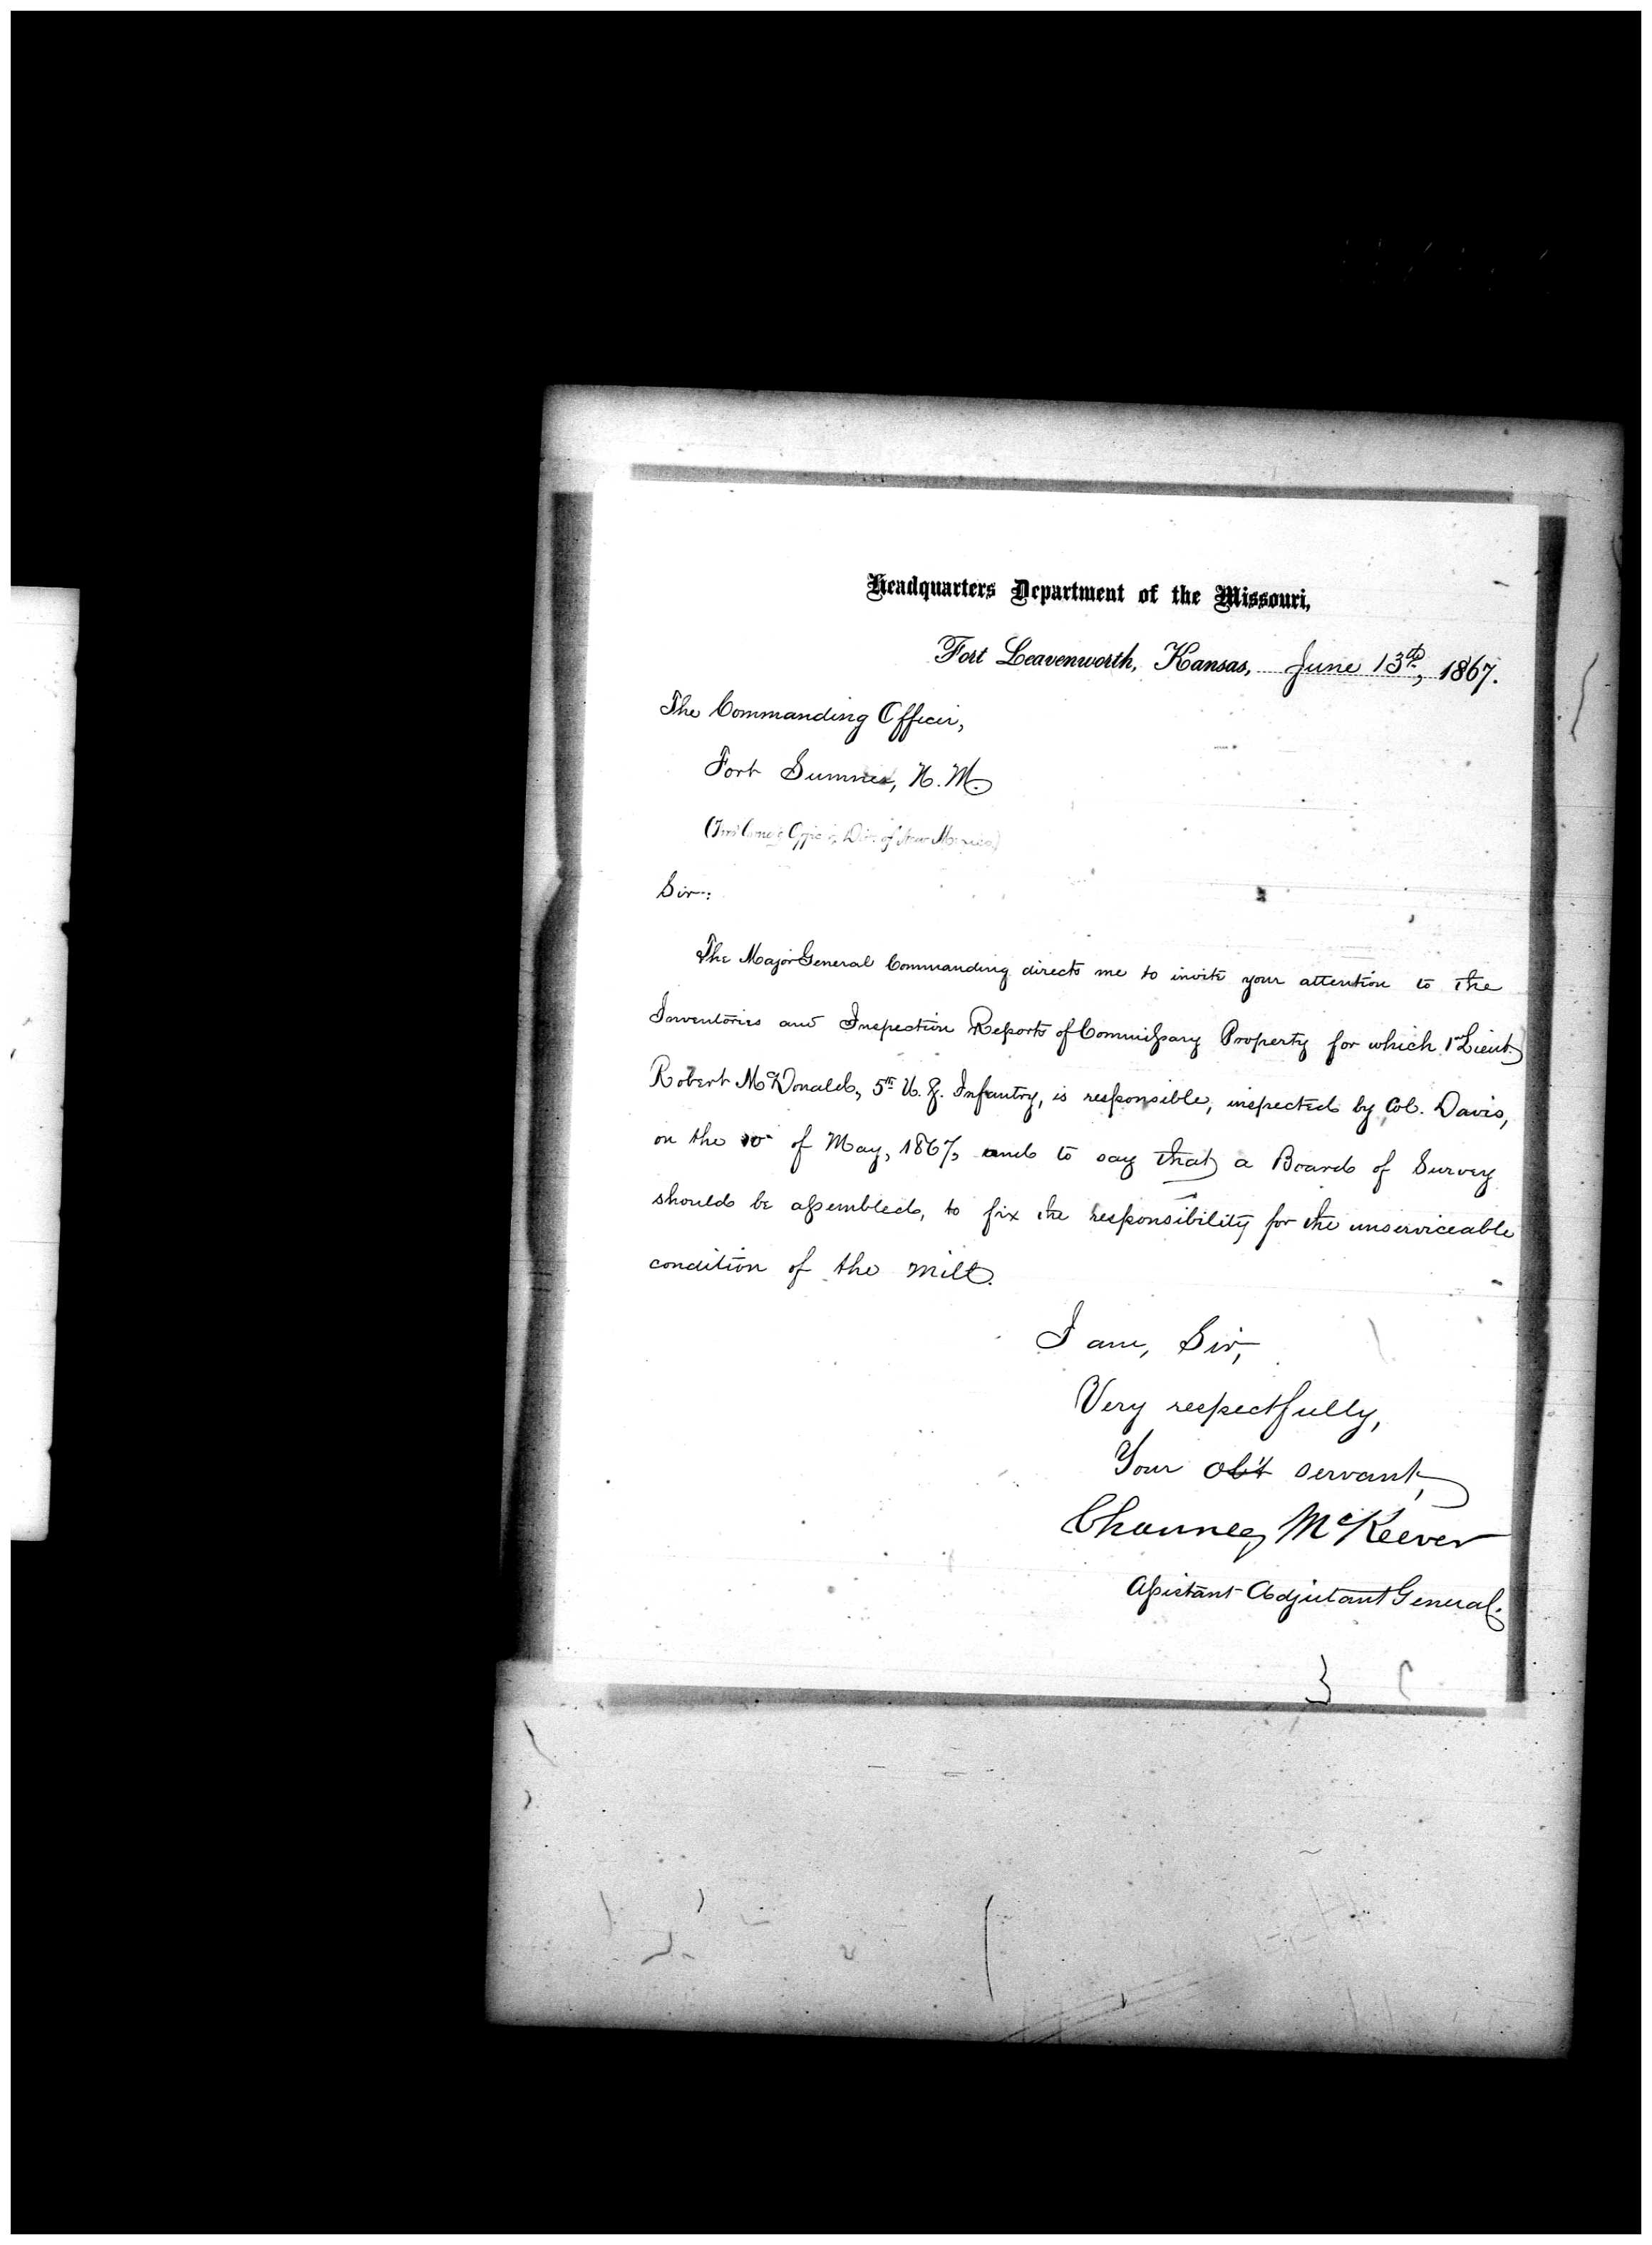 Headquarters Department of the Missouri,
Fort Leavenworth, Kansas, June 13th, 1867.
The Commanding Officer,
Fort Sumner, N. M.
(Thro' Com'g Officer, Dist. of New Mexico)
Sir:
The Major General Commanding directs me to invite your attention to the
Inventories and Inspection Reports of Commissary Property for which 1st Lieut.
Robert McDonald, 5th U. S. Infantry, is responsible, inspected by Col. Davis,
on the of May, 1867, and to say that a Board of Survey
should be assembled, to fix the responsibility for the unserviceable
condition of the mill.
I am, Sir,
Very respectfully,
Your ob't servant,
Chauncey McKeever
Assistant Adjutant General.